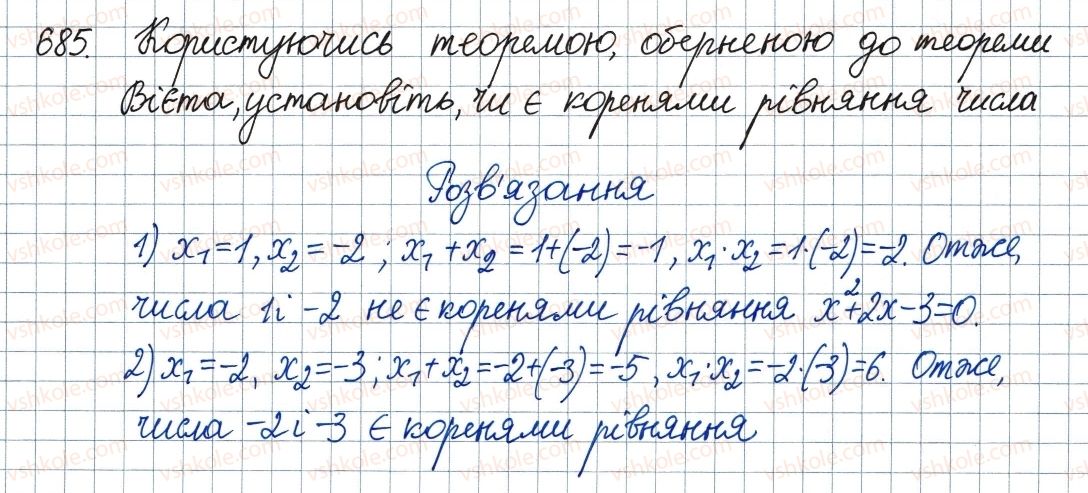 685. Користуючись теоремою, оберненою до теореми
Вієта, установіть, чи є коренями рівняння числа
Розв'язання
1) x₁ = 1, x₂ = -2 ; x₁ + x₂ = 1+(-2) = -1, x₁·x₂ = 1·(-2) = -2. Отже,
числа 1 і -2 не є коренями рівняння x²+2x-3=0.
2) x₁ = -2, x₂ = -3 ; x₁ + x₂ = -2+(-3) = -5, x₁·x₂ = -2·(-3) = 6. Отже,
числа -2 і -3 є коренями рівняння